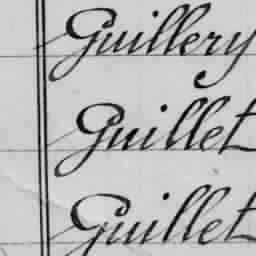 Guillery
Guillet
Guillet